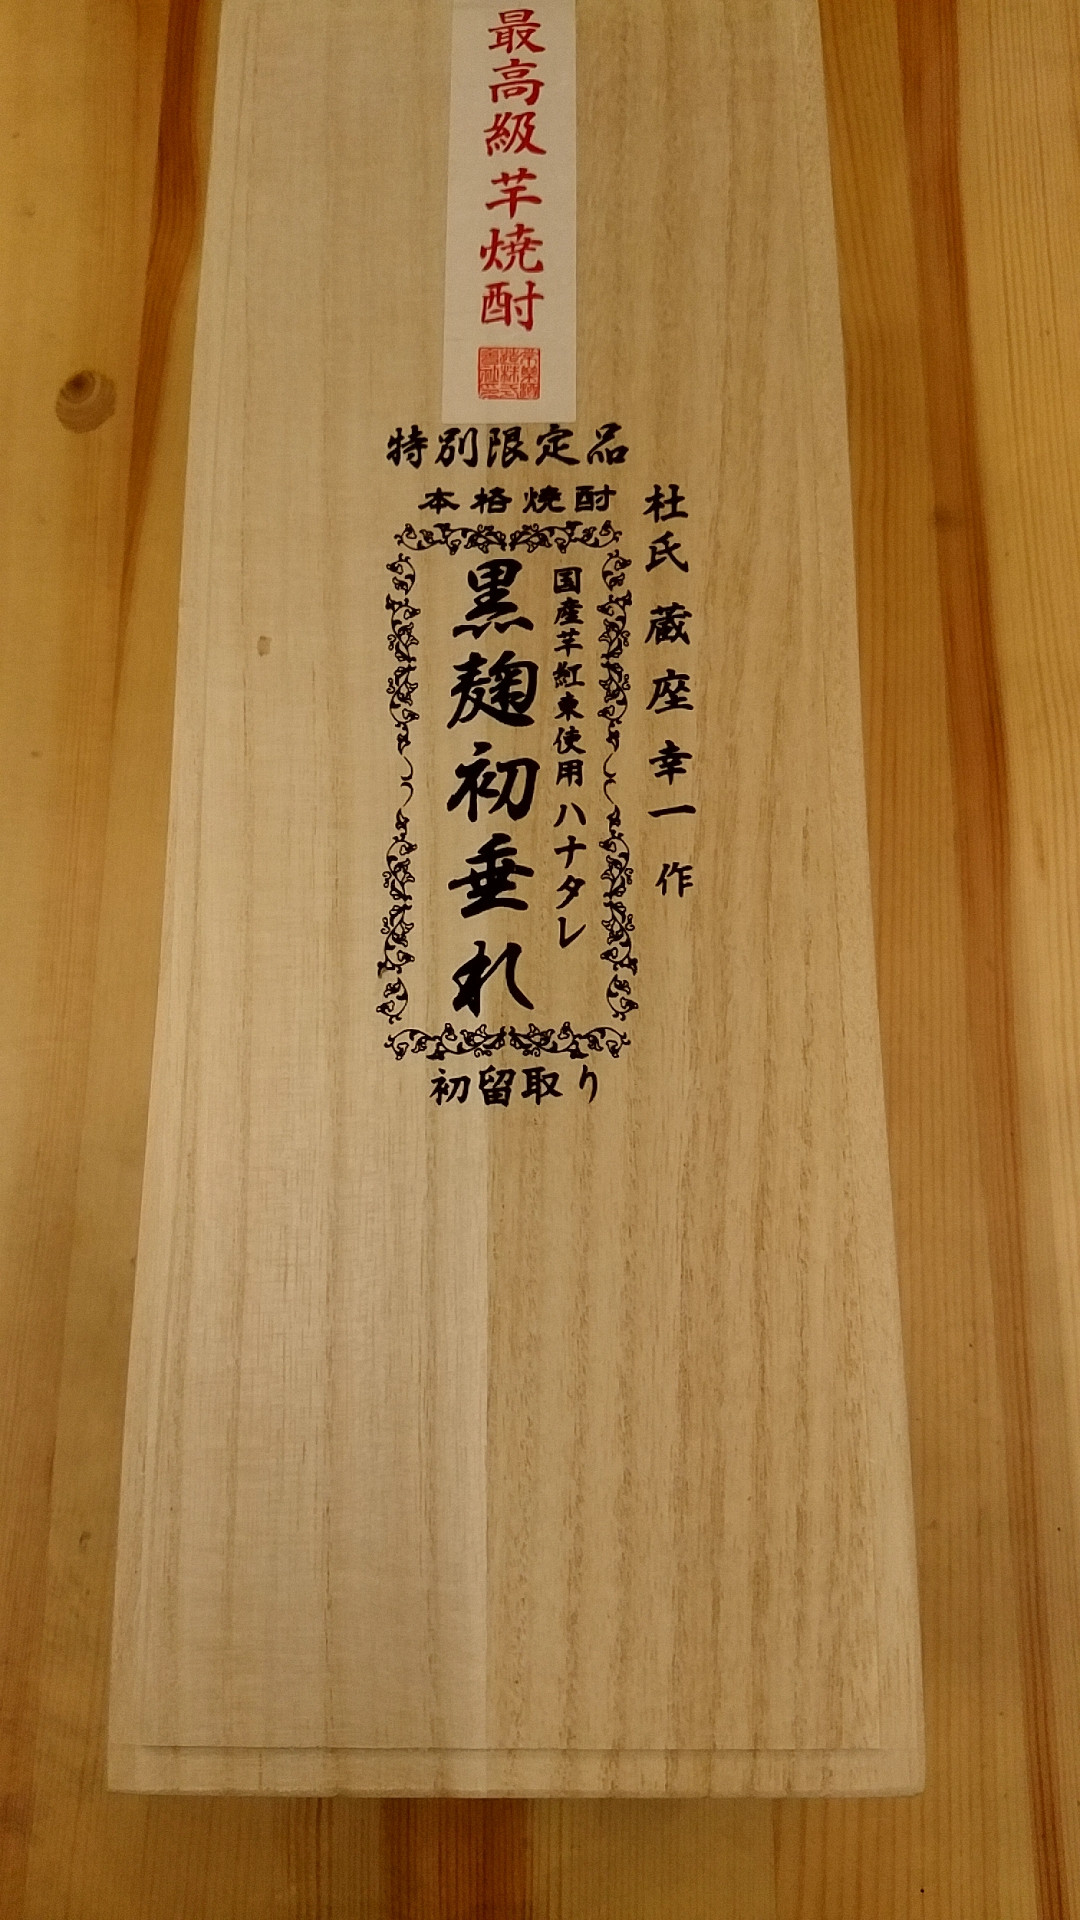 最高級芋焼酎
特別限定品
本格焼酎
杜氏 蔵座幸一 作
国産芋紅東使用ハナタレ
黒麹初垂れ
初留取り